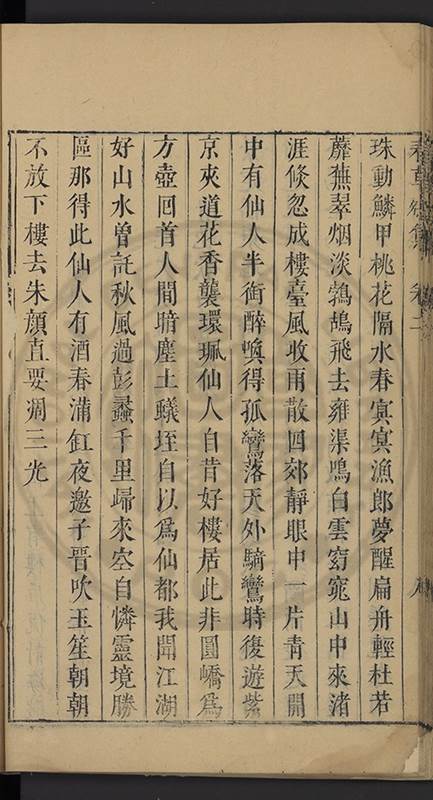 珠動鱗甲桃花隔水春寞寞漁郎夢醒扁舟輕杜若
蘼蕪翠烟淡鷓鴣飛去雍渠鳴白雲窈窕山中來渚
涯倐忽成樓臺風收雨散四郊靜眼中一片青天開
中有仙人半衘醉喚得孤鸞落天外騎鸞時復遊紫
京夾道花香襲環珮仙人自昔好樓居此非圓嶠爲
方壺囘首人間暗塵土蟻垤自以爲仙都我聞江湖
好山水曽託秋風過彭蠡千里歸來空自憐靈境勝
區那得此仙人有酒春滿缸夜邀子晉吹玉笙朝朝
不放下樓去朱顏直要凋三光